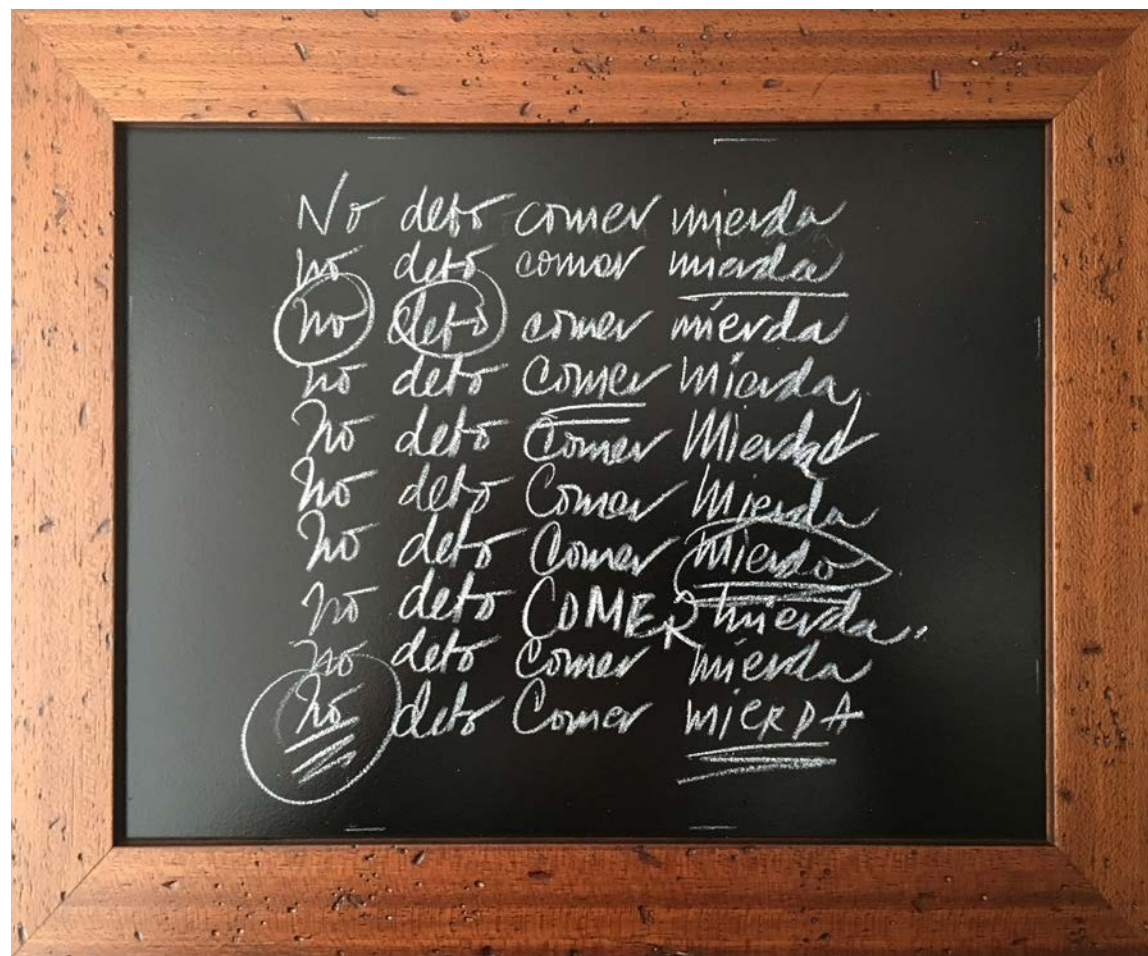 No debo comer mierda
no debo comer mierda
no debo comer mierda
no debo comer mierda
No debo Comer Mierda
No debo Comer Mierda
No debo Comer mierda
no debo COMER mierda.
no debo Comer mierda
no debo Comer MIERDA